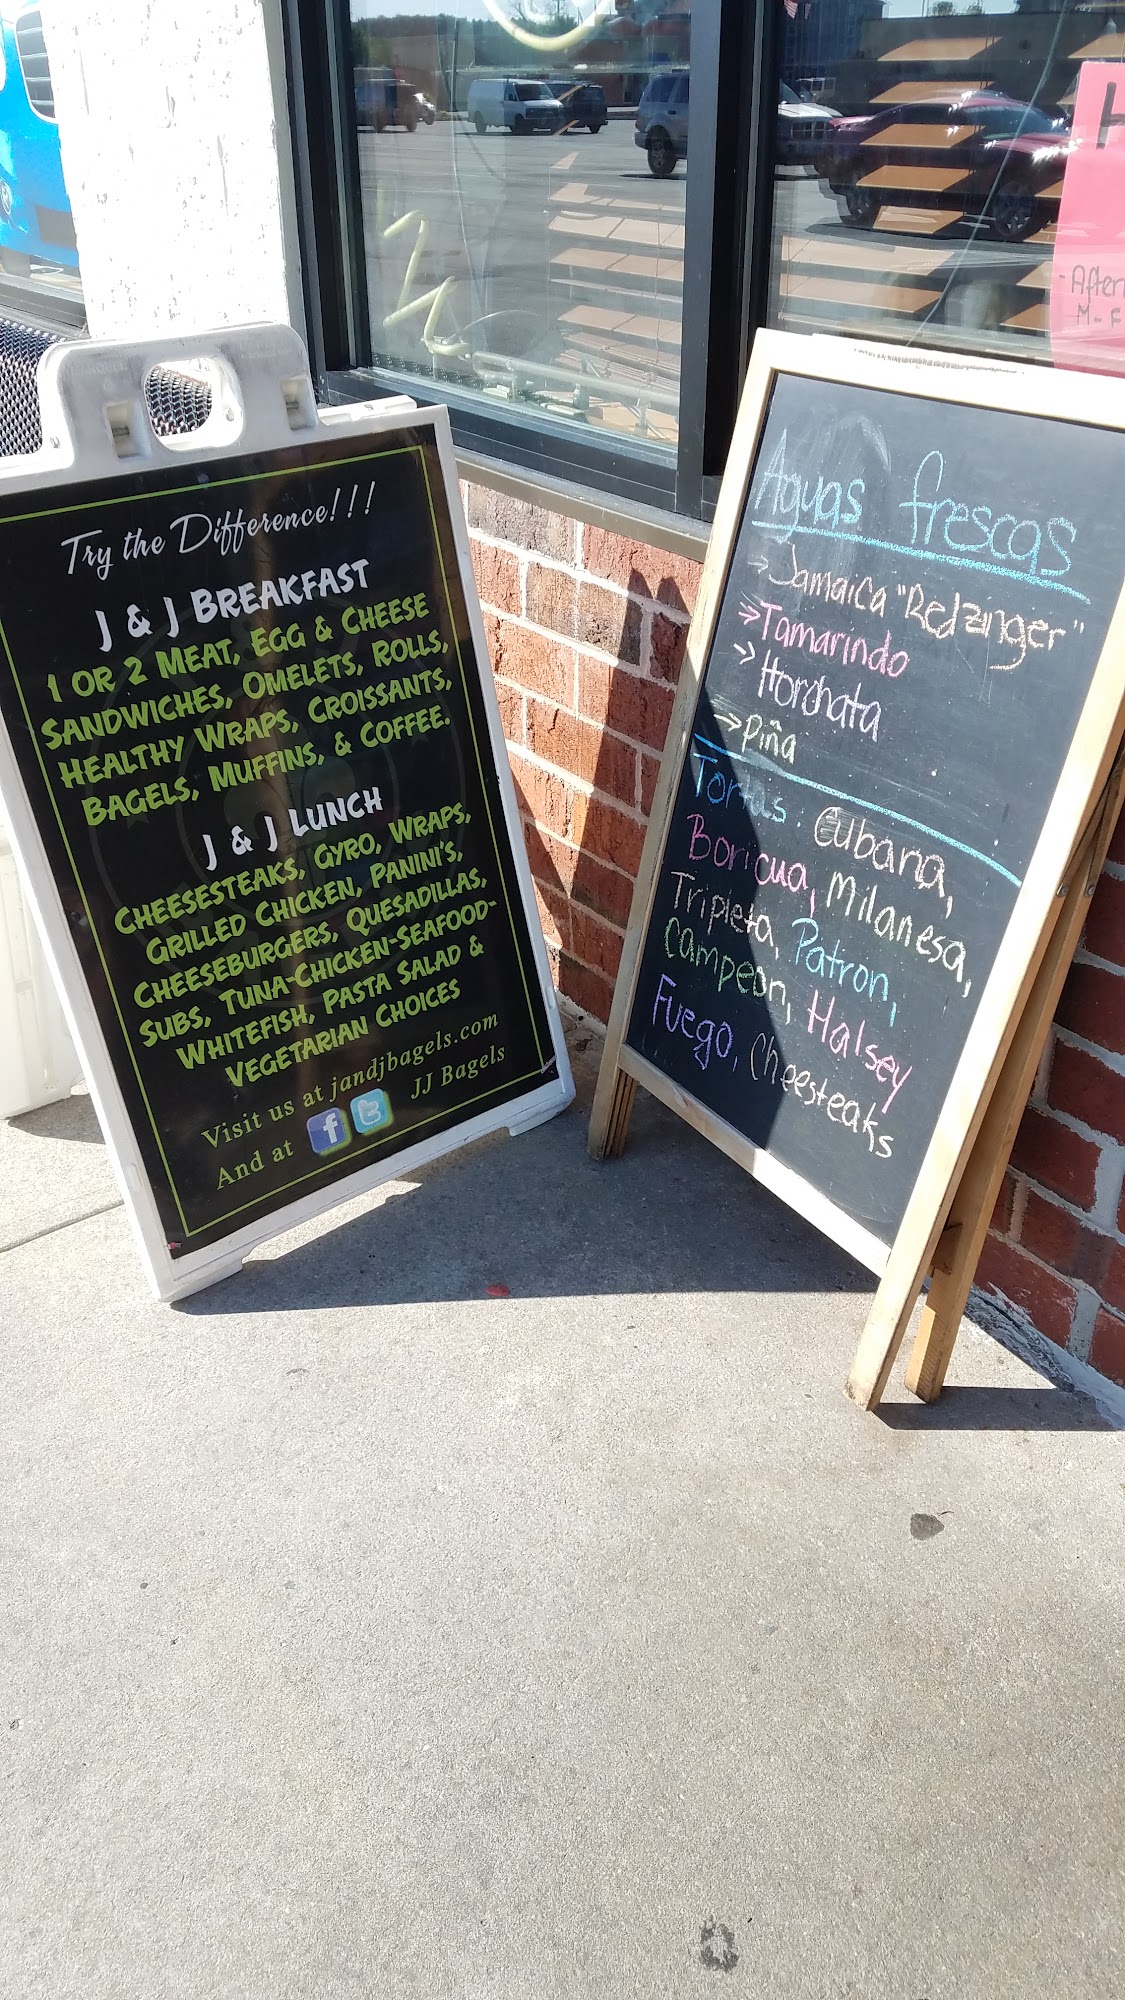 Try the Difference!!!
J & J BREAKFAST
1 OR 2 MEAT, EGG & CHEESE
SANDWICHES, OMELETS, ROLLS,
HEALTHY WRAPS, CROISSANTS,
BAGELS, MUFFINS, & COFFEE.
J & J LUNCH
CHEESESTEAKS, GYRO, WRAPS,
GRILLED CHICKEN, PANINI'S,
CHEESEBURGERS, QUESADILLAS,
SUBS, TUNA-CHICKEN-SEAFOOD-
WHITEFISH, PASTA SALAD &
VEGETARIAN CHOICES
Visit us at jandjbagels.com
And at f t JJ Bagels
Aguas frescas
→ Jamaica "Redzinger"
→ Tamarindo
→ Horchata
→ Piña
Tortas: Cubana,
Boricua, Milanesa,
Tripleta, Patron,
Campeon, Halsey
Fuego, Cheesteaks
M-F